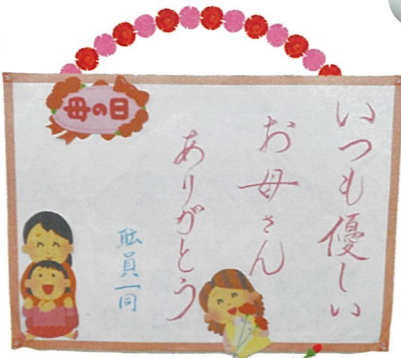 母の日
いつも優しい
お母さん
ありがとう
職員一同